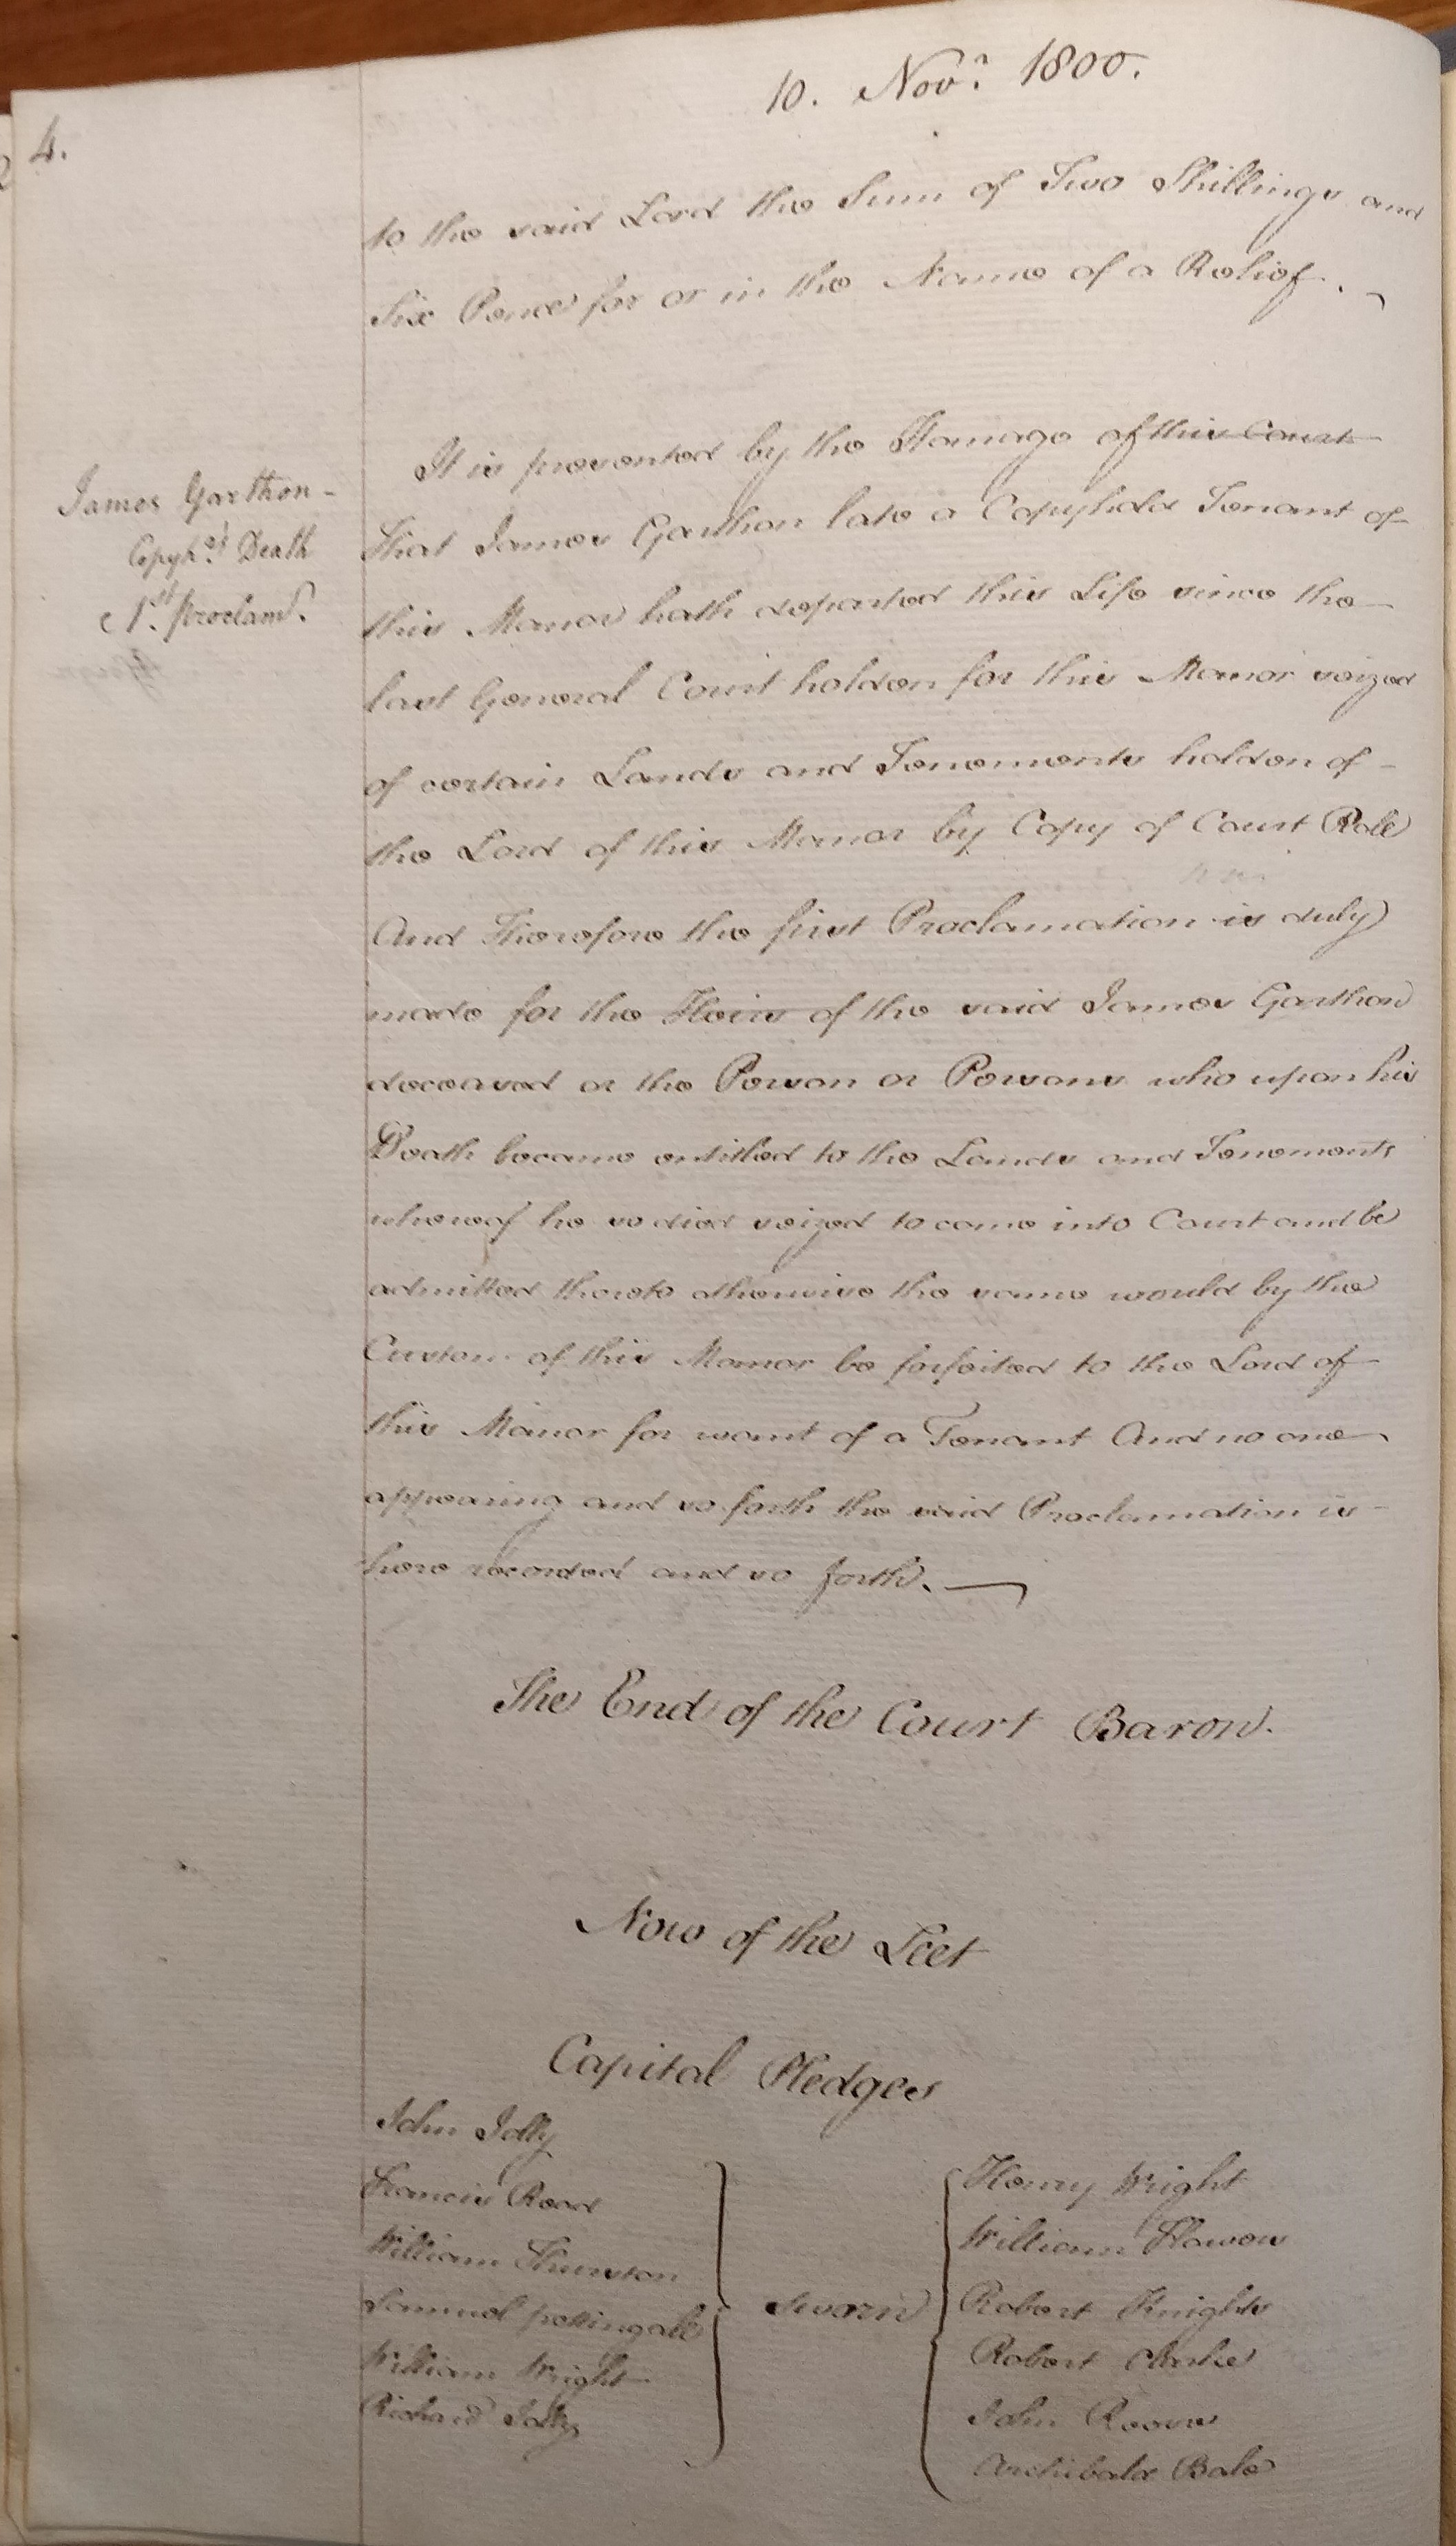 10. Novr. 1800.
4.
to the said Lord the Sum of Two Shillings and
Six Pence for or in the Name of a Relief.
It is presented by the Homage of this Court
James Garthon -
Copyhd. Death
1st. proclamn.
That James Garthon late a Copyhold Tenant of
this Manor hath departed this Life since the
last General Court holden for this Manor seized
of certain Lands and Tenements holden of -
the Lord of this Manor by Copy of Court Roll
And Therefore the first Proclamation is duly
made for the Heirs of the said James Garthon
deceased or the Person or Persons who upon his
Death became entitled to the Lands and Tenements
whereof he so died seized to come into Court and be
admitted thereto otherwise the same would by the
Custom of this Manor be forfeited to the Lord of
this Manor for want of a Tenant And no one
appearing and so forth the said Proclamation is -
here recorded and so forth.
The End of the Court Baron.
Now of the Leet
Capital Pledges
John Jolly
Francis Read
William Thurston
Samuel pettingale
William Wright
Richard Jolly
Sworn
Henry Wright
William Hawes
Robert Knights
Robert Clarke
John Rooms
Archibald Bale